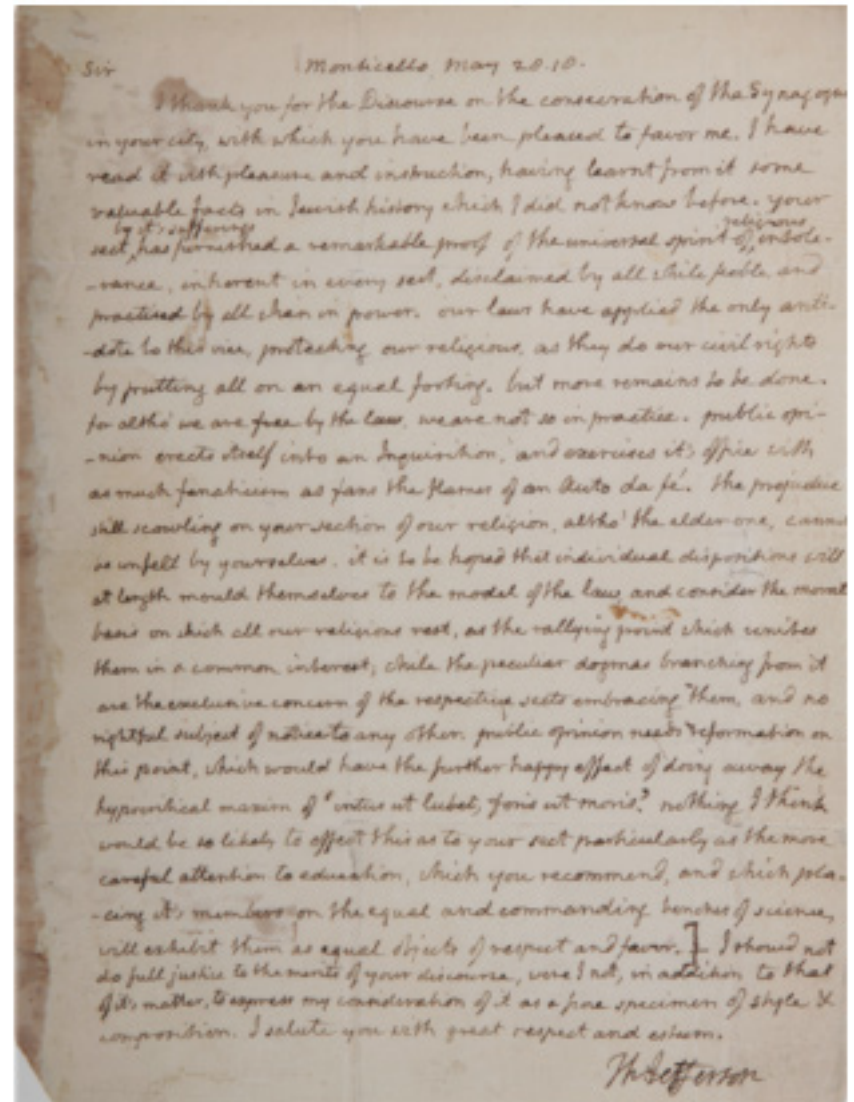 Sir Monticello May 28.18.
I thank you for the Discourse on the consecration of the Synagogue
in your city, with which you have been pleased to favor me. I have
read it with pleasure and instruction, having learnt from it some
valuable facts in Jewish history which I did not know before. your
by it's sufferings religious
sect has furnished a remarkable proof of the universal spirit of intole-
-rance, inherent in every sect, disclaimed by all while feeble, and
practised by all when in power. our laws have applied the only anti-
-dote to this vice, protecting our religious, as they do our civil rights
by putting all on an equal footing. but more remains to be done.
for altho' we are free by the law, we are not so in practice. public opi-
-nion erects itself into an Inquisition, and exercises it's office with
as much fanaticism as fans the flames of an Auto da fé. the prejudice
still scowling on your section of our religion, altho' the elder one, cannot
be unfelt by yourselves. it is to be hoped that individual dispositions will
at length mould themselves to the model of the law, and consider the moral
basis on which all our religions rest, as the rallying point which unites
them in a common interest; while the peculiar dogmas branching from it
are the exclusive concern of the respective sects embracing them, and no
rightful subject of notice to any other. public opinion needs reformation on
this point, which would have the further happy effect of doing away the
hypocritical maxim of 'intus ut lubet, foris ut moris.' nothing I think
would be so likely to effect this as to your sect particularly as the more
careful attention to education, which you recommend, and which pla-
-cing it's members on the equal and commanding benches of science,
will exhibit them as equal objects of respect and favor.] I should not
do full justice to the merits of your discourse, were I not, in addition to that
of it's matter, to express my consideration of it as a fine specimen of style &
composition. I salute you with great respect and esteem.
Th Jefferson